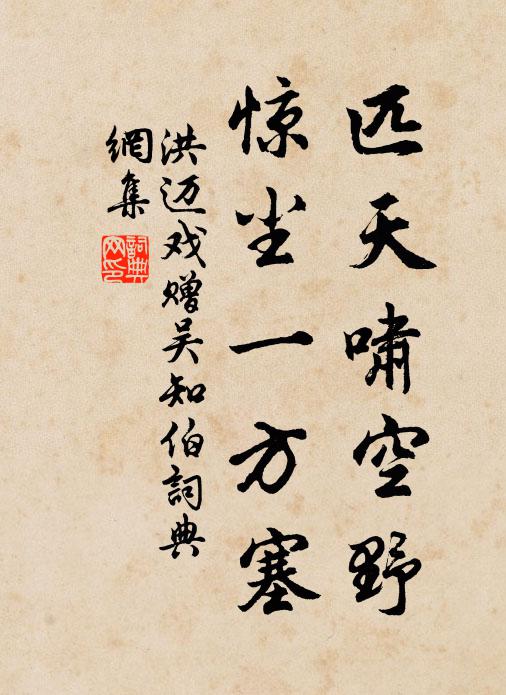 匹天啸空野
惊尘一方塞
洪迈戏赠吴知伯詞典
網集
詞典
网印